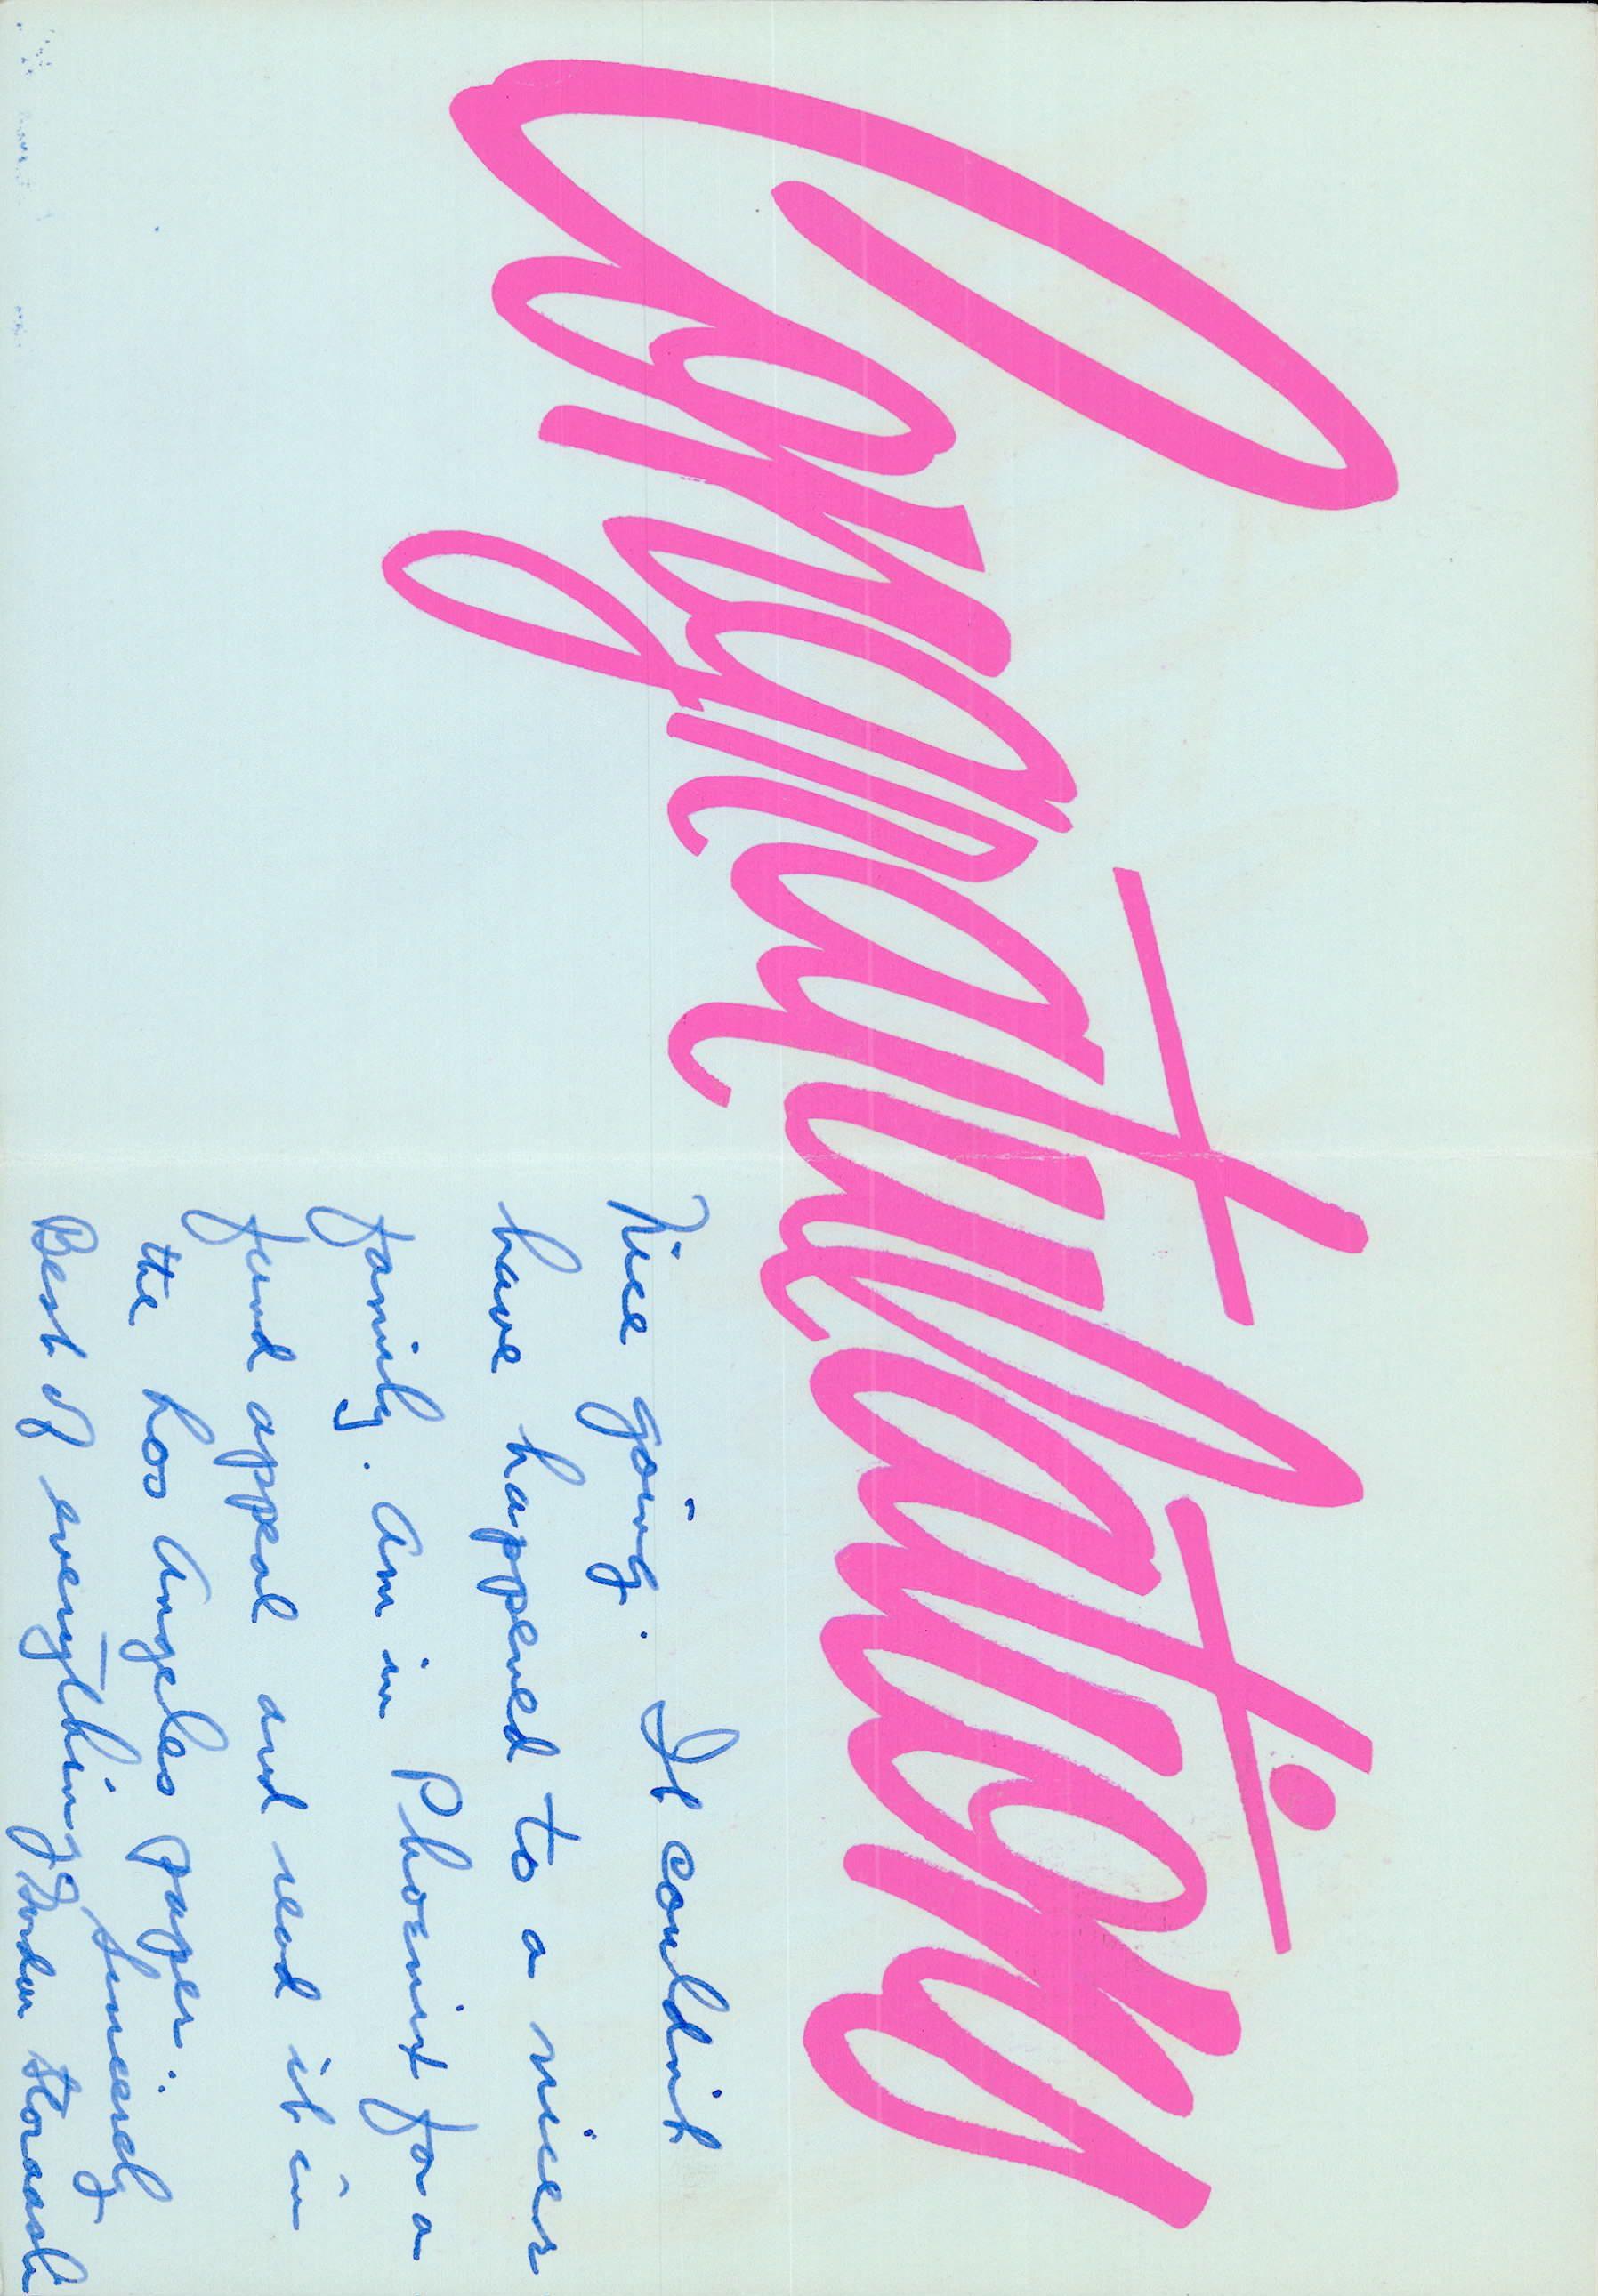 Congratulations
Nice going. It couldnt
have happened to a nicer
family. Am in Phoenix for a
fund appeal and read it in
the Los Angeles paper.
Best of everything, Sincerely